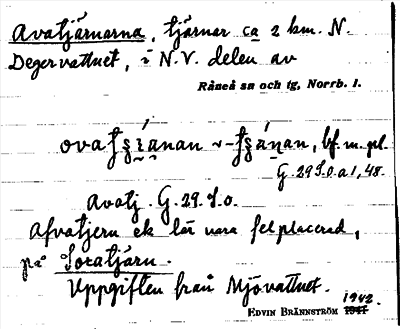 Avatjärnarna, tjärnar ca 2 km. N.
Degervattnet, i N.V. delen av
Råneå sn och tg, Norrb. l.
bf. m. pl.
G. 29 S.o. a 1, 48.
Avatj. G. 29. S.o.
Afvatjern ek lär vara felplacerad,
på Soratjärn.
Uppgiften från Mjövattnet.
1942.
EDVIN BRÄNNSTRÖM 1941